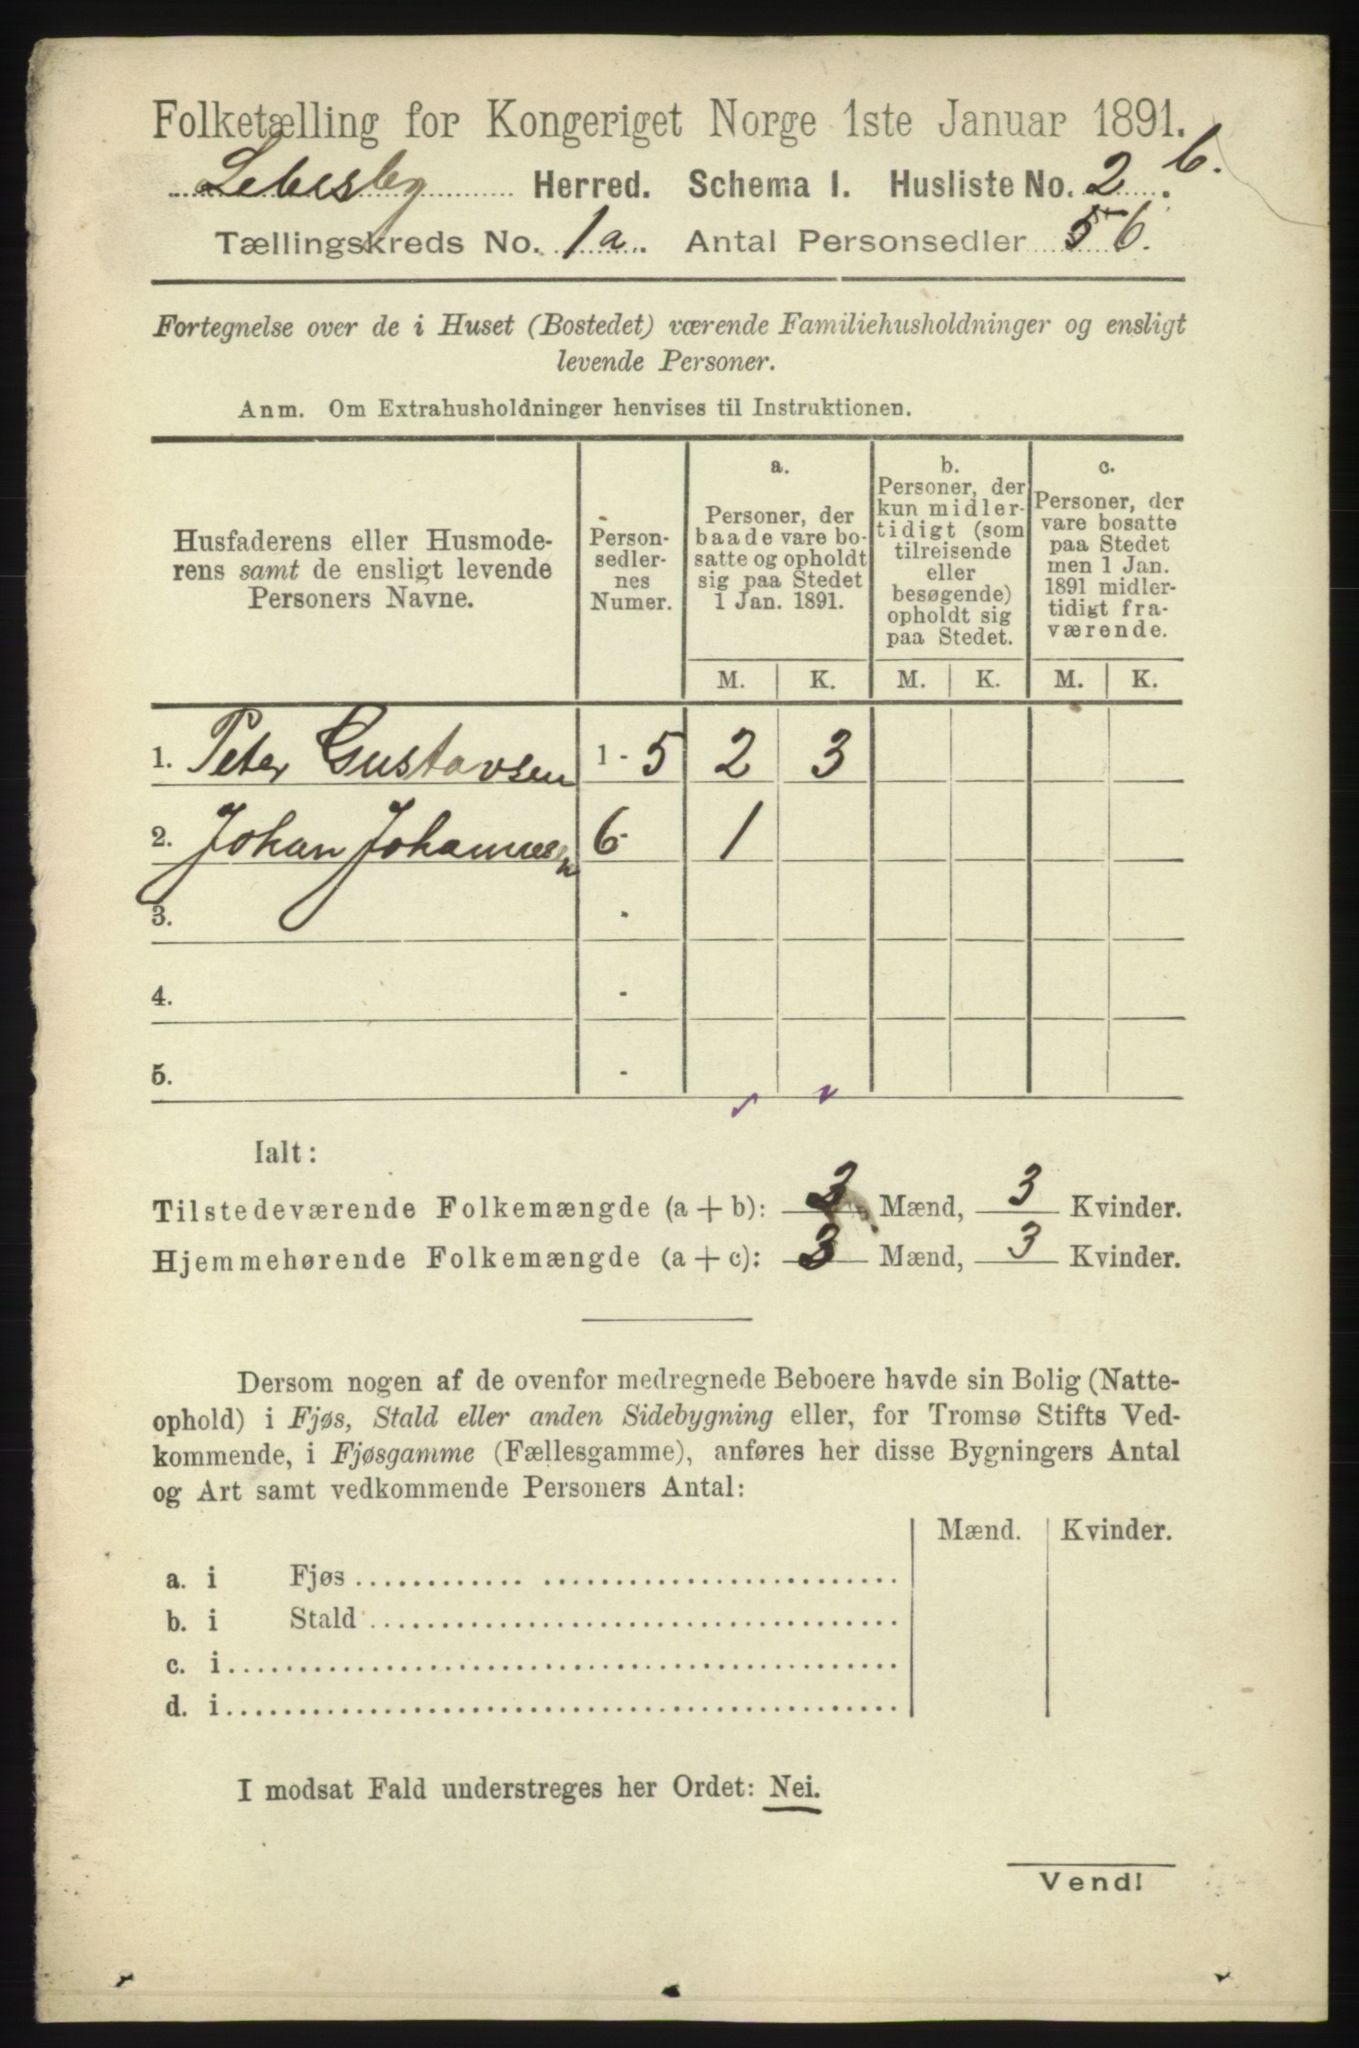 Folketælling for Kongeriget Norge 1ste Januar 1891.
Lebesby Herred. Schema I. Husliste No. 2 b.
Tællingskreds No. 1a. Antal Personsedler 5 6.
Fortegnelse over de i Huset (Bostedet) værende Familiehusholdninger og ensligt
levende Personer.
Anm. Om Extrahusholdninger henvises til Instruktionen.
Husfaderens eller Husmode-
rens samt de ensligt levende
Personers Navne.
Person-
sedler-
nes
Numer.
a.
Personer, der
baade vare bo-
satte og opholdt
sig paa Stedet
1 Jan. 1891.
b.
Personer, der
kun midler-
tidigt (som
tilreisende
eller
besøgende)
opholdt sig
paa Stedet.
c.
Personer, der
vare bosatte
paa Stedet
men 1 Jan.
1891 midler-
tidigt fra-
værende.
M. K. M. K. M. K.
1. Peter Gustavsen 1 - 5 2 3
2. Johan Johannesen 6 - 1
3. -
4. -
5. -
Ialt:
Tilstedeværende Folkemængde (a + b): 3 Mænd, 3 Kvinder.
Hjemmehørende Folkemængde (a + c): 3 Mænd, 3 Kvinder.
Dersom nogen af de ovenfor medregnede Beboere havde sin Bolig (Natte-
ophold) i Fjøs, Stald eller anden Sidebygning eller, for Tromsø Stifts Ved-
kommende, i Fjøsgamme (Fællesgamme), anføres her disse Bygningers Antal
og Art samt vedkommende Personers Antal:
Mænd. Kvinder.
a. i Fjøs
b. i Stald
c. i
d. i
I modsat Fald understreges her Ordet: Nei.
Vend!